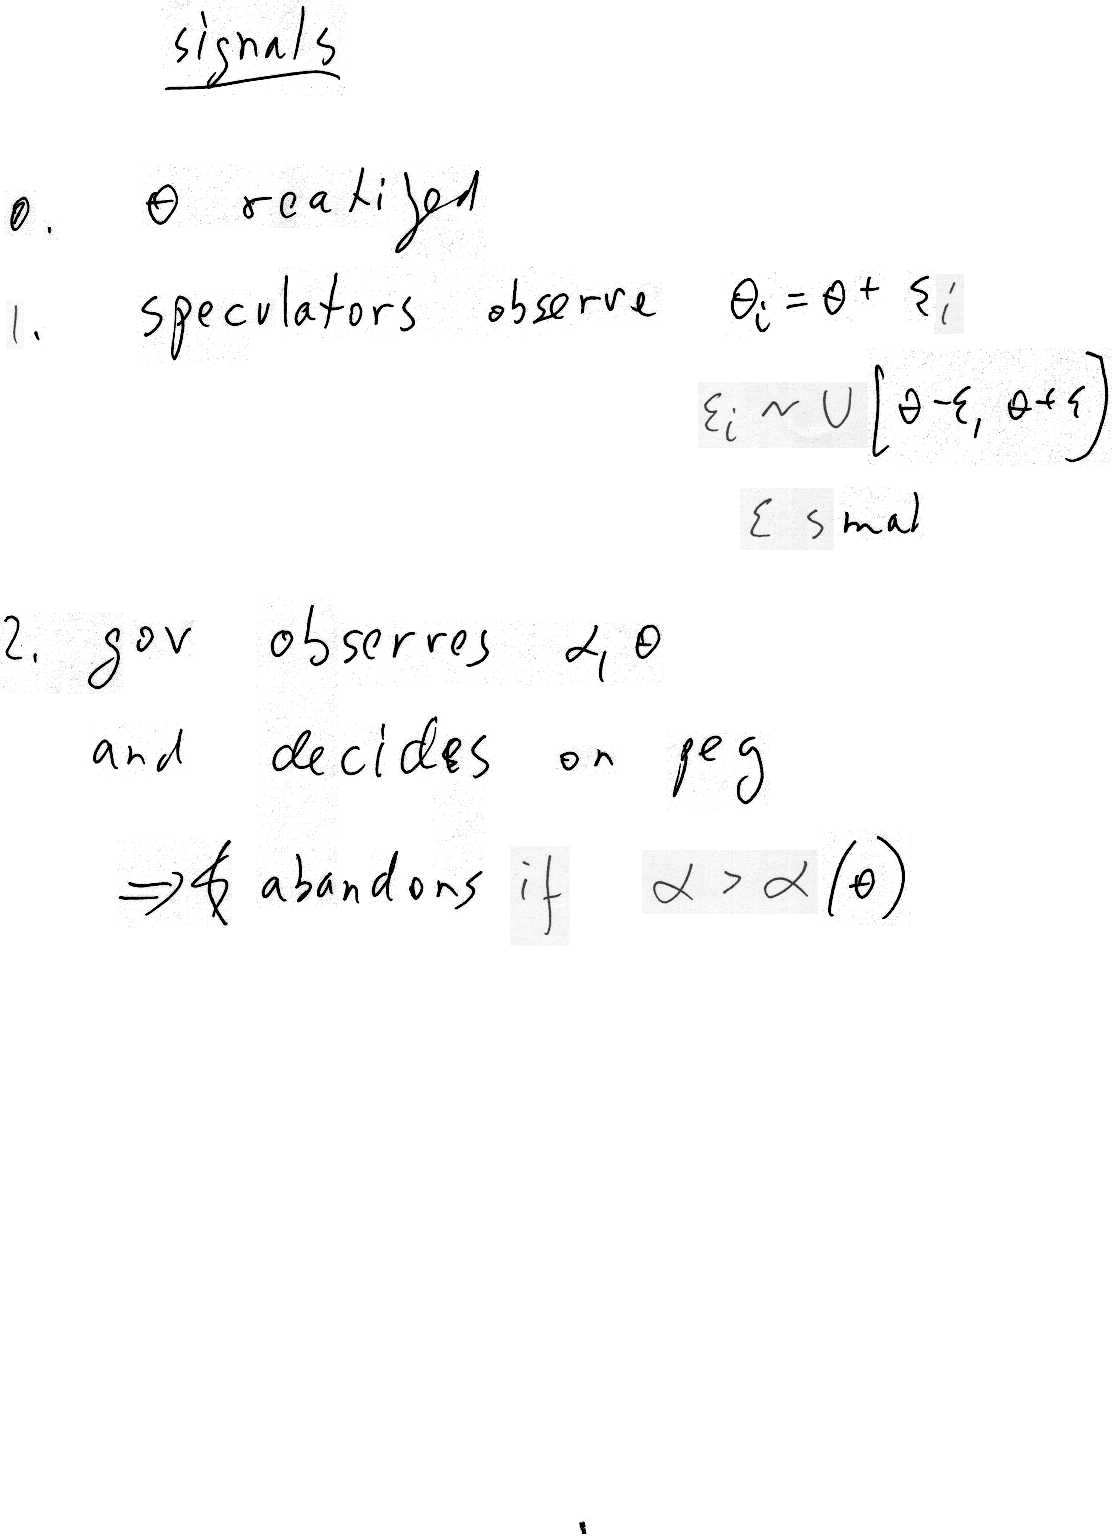 signals
0. θ realized
1. speculators observe θi = θ + εi
εi ~ U[θ-ε, θ+ε]
ε smal
2. gov observes α, θ
and decides on peg
⇒ abandons if α > α(θ)